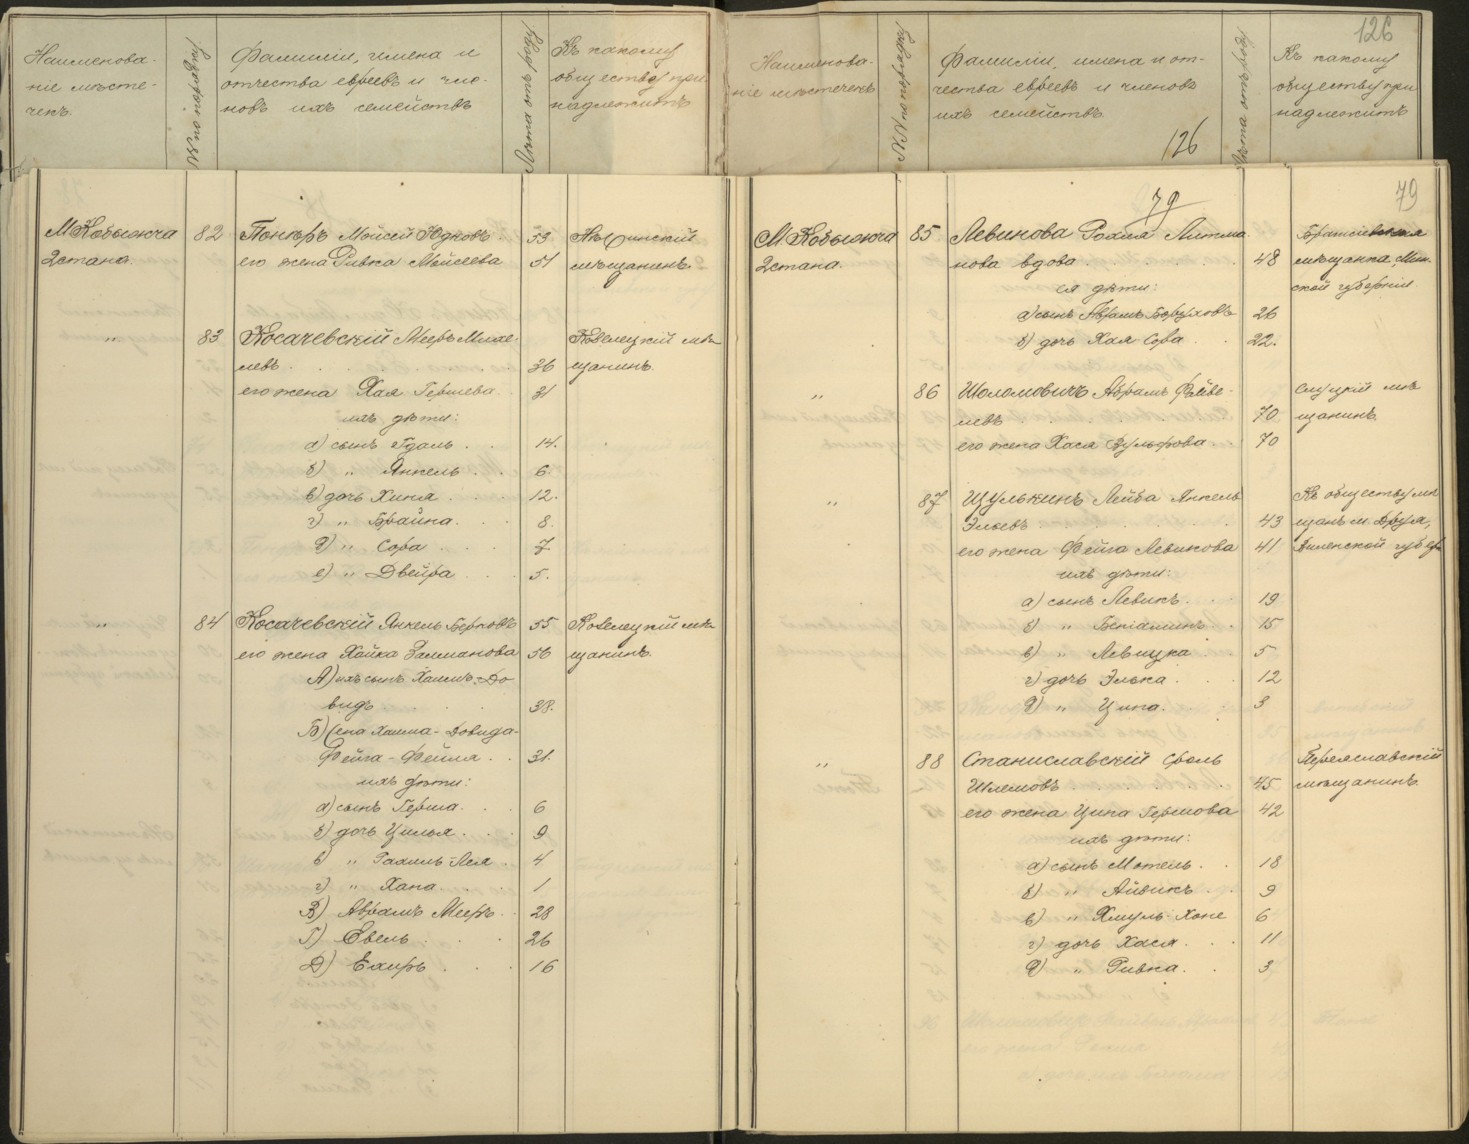 Наименова-
ніе местечекъ.
№ по порядку
Фамиліи, имена и
отчества евреевъ и чле-
новъ ихъ семействъ
Лета отъ роду
Къ какому
обществу при-
надлежитъ
М. Кобыжча
2 стана.
82
его жена Ривка Мойсеева
мещанинъ.
"
83
Косачевскій Мееръ
левъ 36
Козелецкій ме-
щанинъ.
его жена Хая Гершева 31
ихъ дети:
а) сынъ 14.
б) " Янкель 6.
в) дочь Хиня 12.
г) " Брайна 8.
д) " Сора 7
е) " Двейра 5.
"
84
Косачевскій Янкель Берковъ 55
Козелецкій ме-
щанинъ.
его жена Хайка Залманова 56
А) ихъ сынъ Хаимъ-До-
видъ 38.
Б) жена Хаима-Довида
Фейга-Фейгля 31.
ихъ дети:
а) сынъ Герша 6
б) дочь Ципья 9
в) " Рахиль Лея 4
г) " Хана 1
В) Аврамъ Мееръ 28
Г) Евель 26
Д) 16
126
Наименова-
ніе местечекъ
№№ по порядку
Фамиліи, имена и от-
чества евреевъ и членовъ
ихъ семействъ.
126
Лета отъ роду
Къ какому
обществу при-
надлежитъ
79
79
М. Кобыжча
2 стана.
85
Левинова
нова вдова 48
мещанка, Мин-
ской губерніи.
ея дети:
а) сынъ Аврамъ Боруховъ 26
б) дочь Хая Сора 22.
"
86
Шоломовичъ Аврамъ Файве-
левъ 70
Слуцкій ме-
щанинъ.
его жена Хася Вульфова 70
"
87
Цулькинъ Лейба Янкель
43
Къ обществу ме-
щанъ м. Друя,
Виленской губер.
его жена Фейга Левикова 41
ихъ дети:
а) сынъ Левикъ 19
б) " Беніаминъ 15
в) " 5
г) дочь Элька 12
д) " Ципа 3
"
88
Станиславскій Сроль
Шлемовъ 45
Переяславскій
мещанинъ.
его жена Ципа Гершова 42
ихъ дети:
а) сынъ Мотель 18
б) " Айзикъ 9
в) " Хмуль Хоне 6
г) дочь Хася 11
д) " Ривка 3